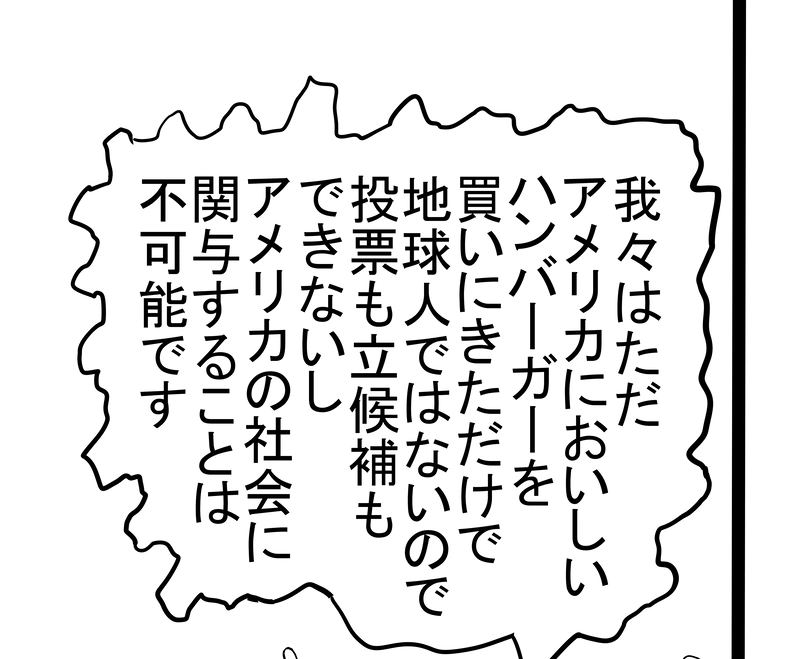 我々はただ
アメリカにおいしい
ハンバーガーを
買いにきただけで
地球人ではないので
投票も立候補も
できないし
アメリカの社会に
関与することは
不可能です